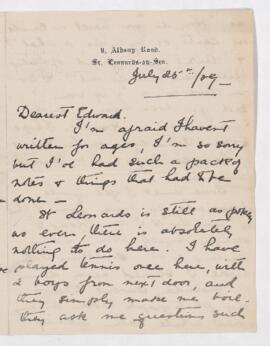 9, Albany Road.
St. Leonards-on-Sea.
July 25th/09
Dearest Edward.
I'm afraid I haven't
written for ages, I'm so sorry
but I've had such a pack of
notes & things that had to be
done –
St Leonards is still as pokey
as ever, there is absolutely
nothing to do here. I have
played tennis once here, with
2 boys from next door, and
they simply make me boil.
they ask me questions such